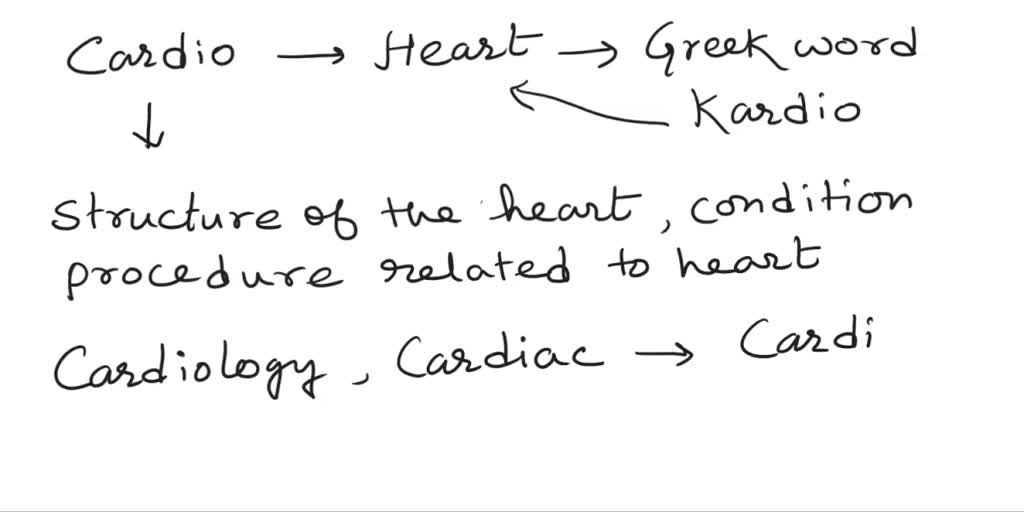 Cardio → Heart → Greek word
Kardio
structure of the heart, condition
procedure related to heart
Cardiology, Cardiac → Cardi